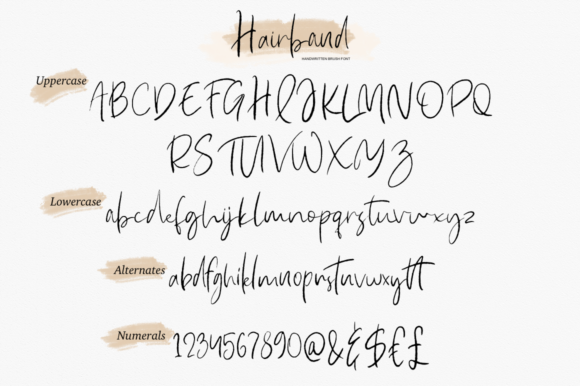 Hairband
HANDWRITTEN BRUSH FONT
Uppercase
ABCDEFGHIJKLMNOPQ
RSTUVWXYZ
Lowercase
abcdefghijklmnopqrstuvwxyz
Alternates
abdfghiklmnoprstuvwxytt
Numerals
1234567890@&&$€£